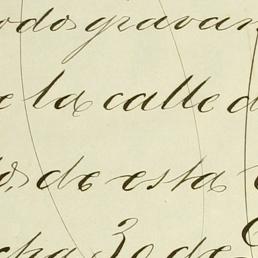 odos gravan
e la calle d
s, de esta
cha 30 de